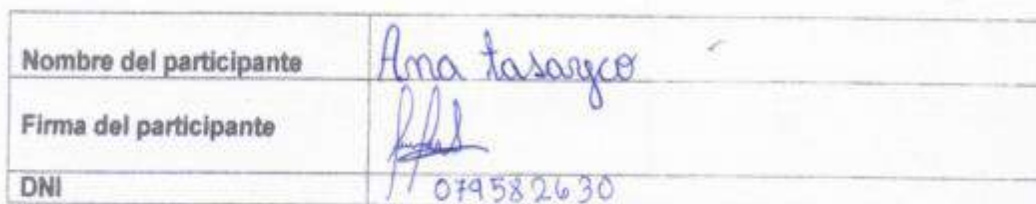 Nombre del participante Ana tasayco
Firma del participante
DNI 079582630